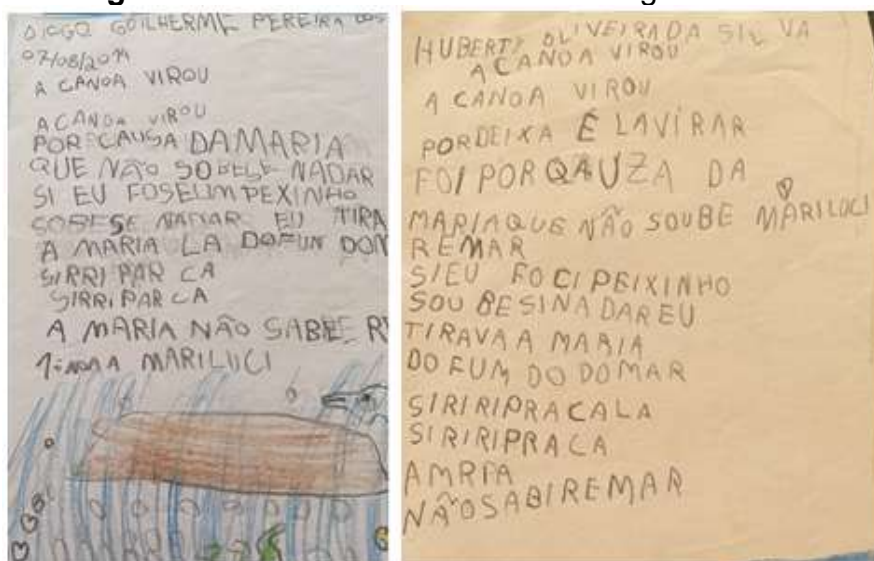 DIOGO GUILHERME PEREIRA DOS
07/08/2019
A CANOA VIROU
A CANOA VIROU
POR CAUSA DAMARIA
QUE NÃO SOBELE NADAR
SI EU FOSEUMPEXINHO
SOBESE NADAR EU TIRA
A MARIA LA DOFUN DOM
SIRRI PAR CA
SIRRI PAR CA
A MARIA NÃO SABE R
A MARILUCI
HUBERTY OLIVEIRADA SILVA
A CANOA VIROU
A CANOA VIROU
PORDEIXA É LAVIRAR
FOI PORQAUZA DA
MARIAQUE NÃO SOUBE MARILUCI
REMAR
SIEU FOCI PEIXINHO
SOUBESINADAREU
TIRAVAA MARIA
DOFUMDODOMAR
SIRIRIPRACALA
SIRIRIPRACA
AMRIA
NÃOSABIREMAR